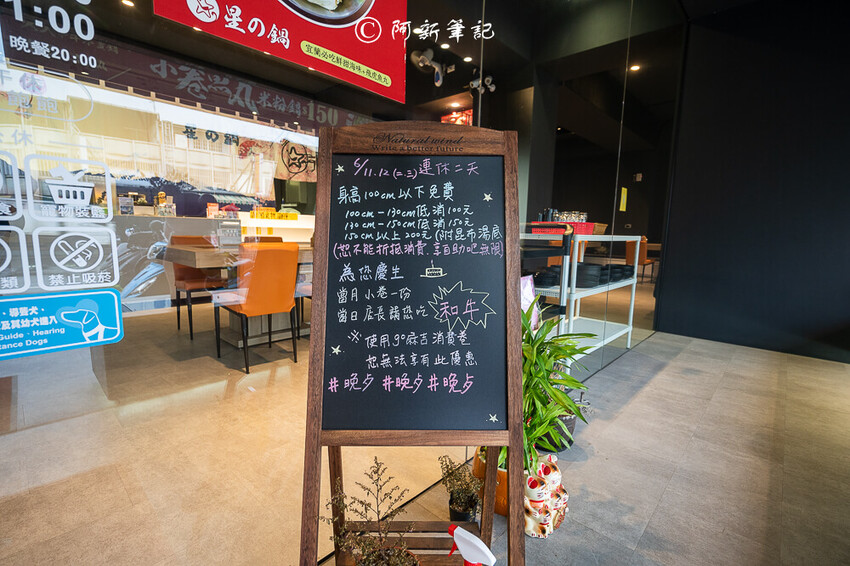 1:00
晚餐20:00
星の鍋
宜蘭必吃鮮甜海味+飛虎魚丸
© 阿新筆記
小卷米粉鍋150
星の鍋
寵物裝籃
禁止吸菸
導聾犬
Guide、Hearing
Assistance Dogs
Natural wind
Write a better future
6/11.12(二.三)連休二天
身高100cm以下免費
100cm-130cm低消100元
130cm-150cm低消150元
150cm以上200元(附昆布湯底)
(恕不能折抵消費.享自助吧無限)
為您慶生
當月小卷一份
當日店長請您吃 和牛
※使用90麻吉消費卷
恕無法享有此優惠
#晚歺 #晚歺 #晚歺